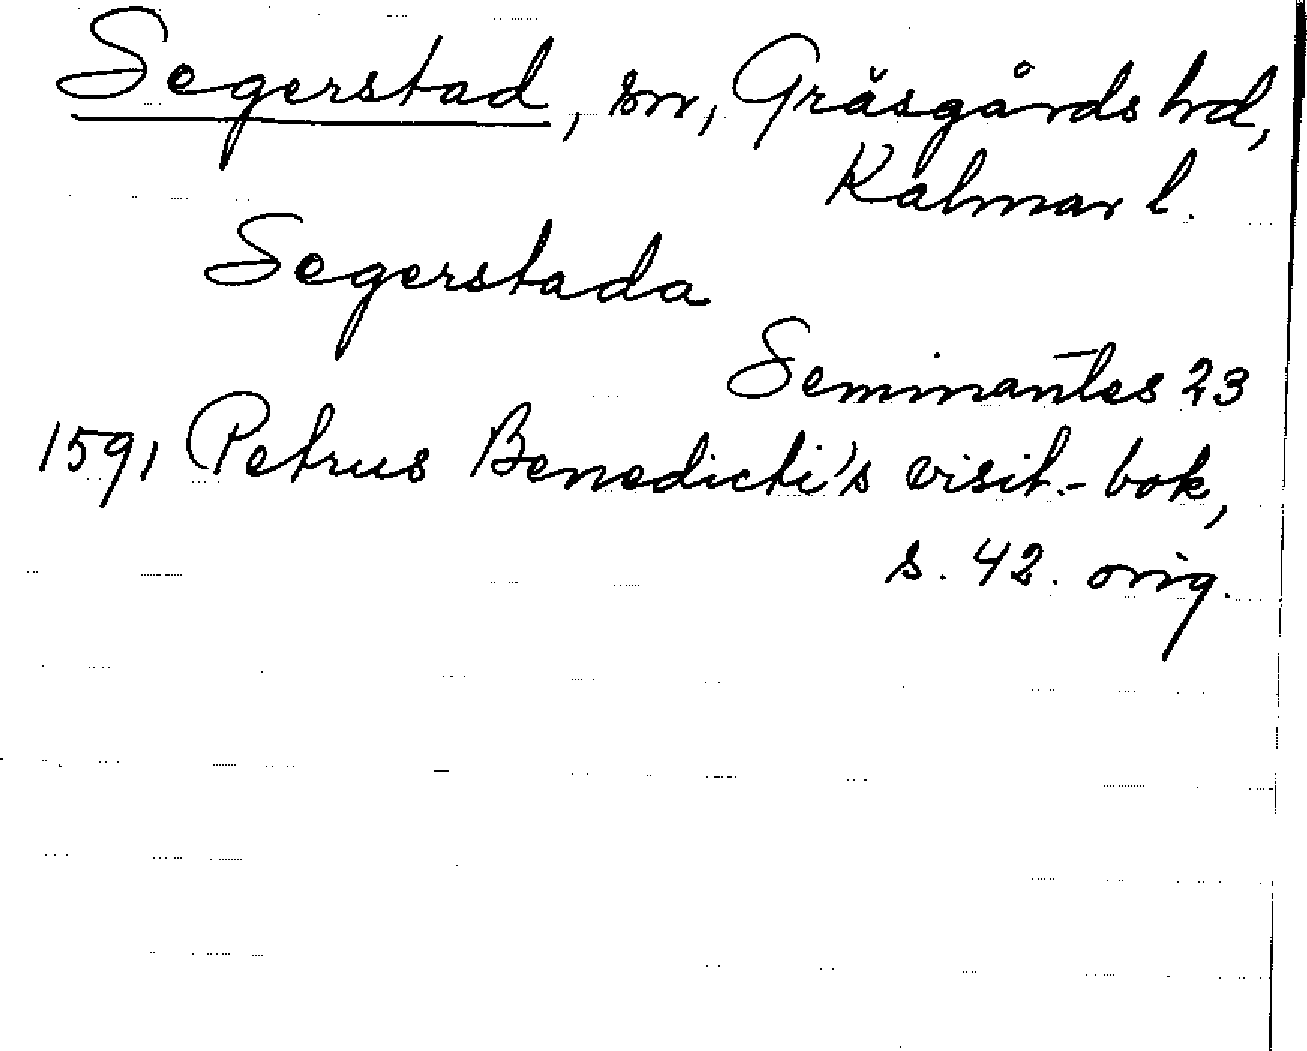 Segerstad, sn, Gräsgårds hd,
Kalmar l.
Segerstada
Seminantes 23
1591 Petrus Benedicti's visit.- bok,
s. 42. orig.